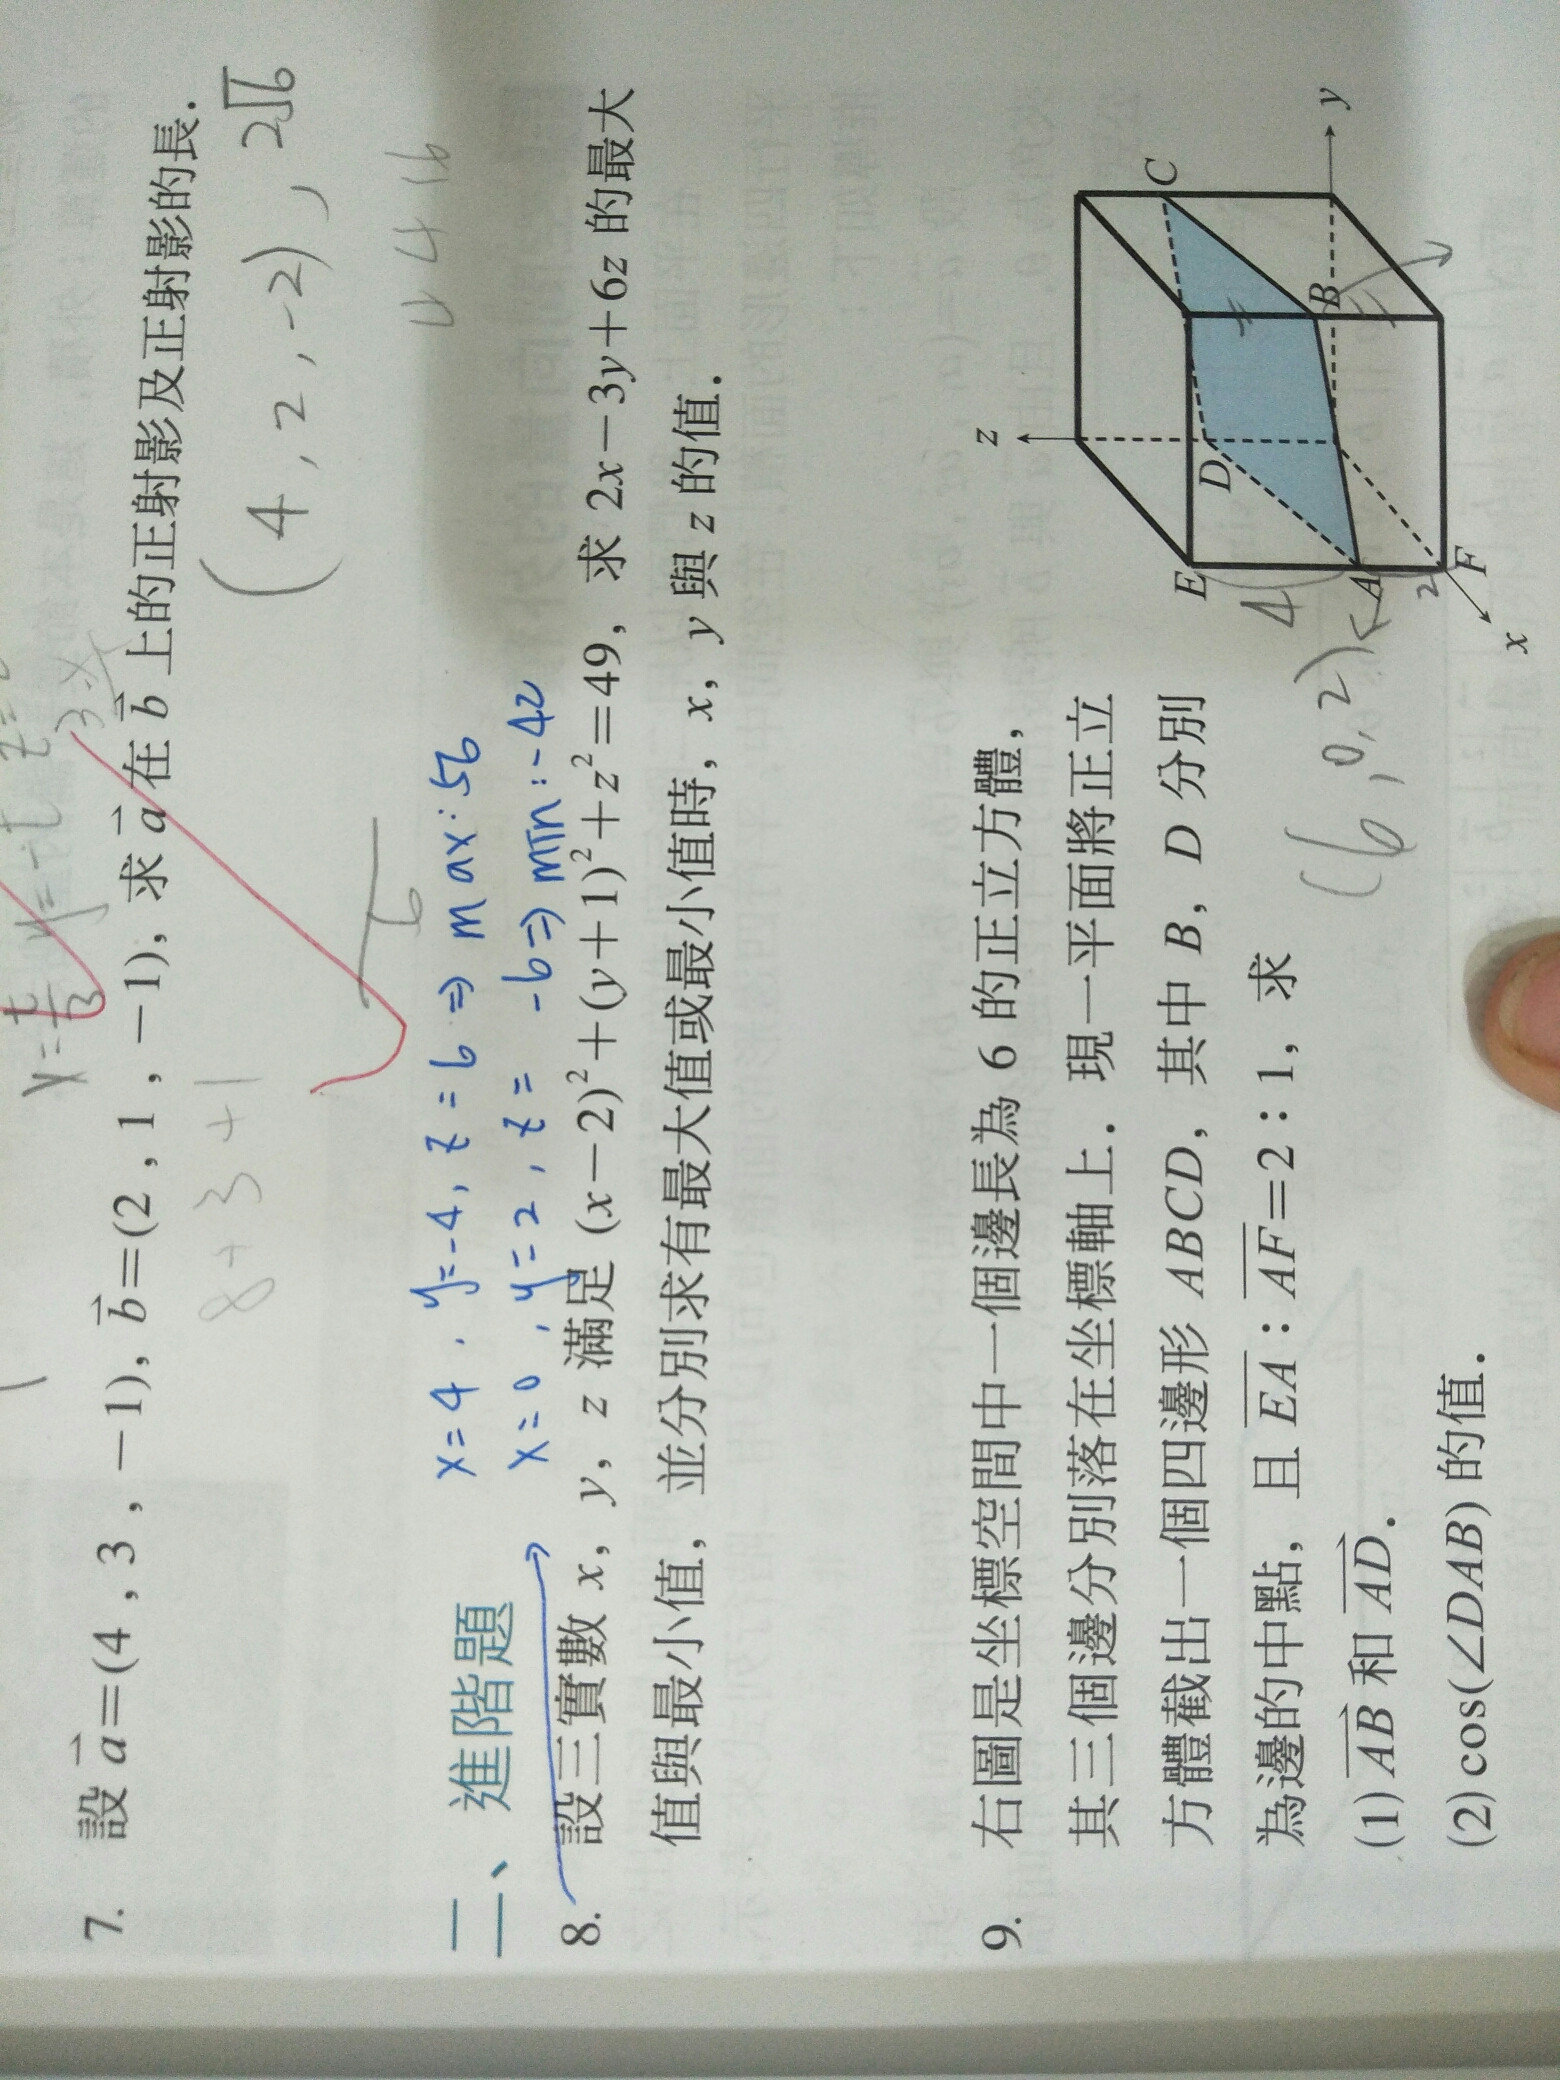 7. 設 a=(4,3,-1), b=(2,1,-1), 求 a 在 b 上的正射影及正射影的長.
8+3+1
6
(4,2,-2), 2√6
4 4 16
二、進階題
x=4, y=-4, z=6 ⇒ max:56
x=0, y=2, z=-6 ⇒ min:-42
8. 設三實數 x, y, z 滿足 (x-2)²+(y+1)²+z²=49, 求 2x-3y+6z 的最大
值與最小值, 並分別求有最大值或最小值時, x, y 與 z 的值.
9. 右圖是坐標空間中一個邊長為 6 的正立方體,
其三個邊分別落在坐標軸上. 現一平面將正立
方體截出一個四邊形 ABCD, 其中 B, D 分別
為邊的中點, 且 EA:AF=2:1, 求
(1) AB 和 AD.
(2) cos(∠DAB) 的值.
z
E
D
C
4
A
B
y
2
F
x
(6,0,2)